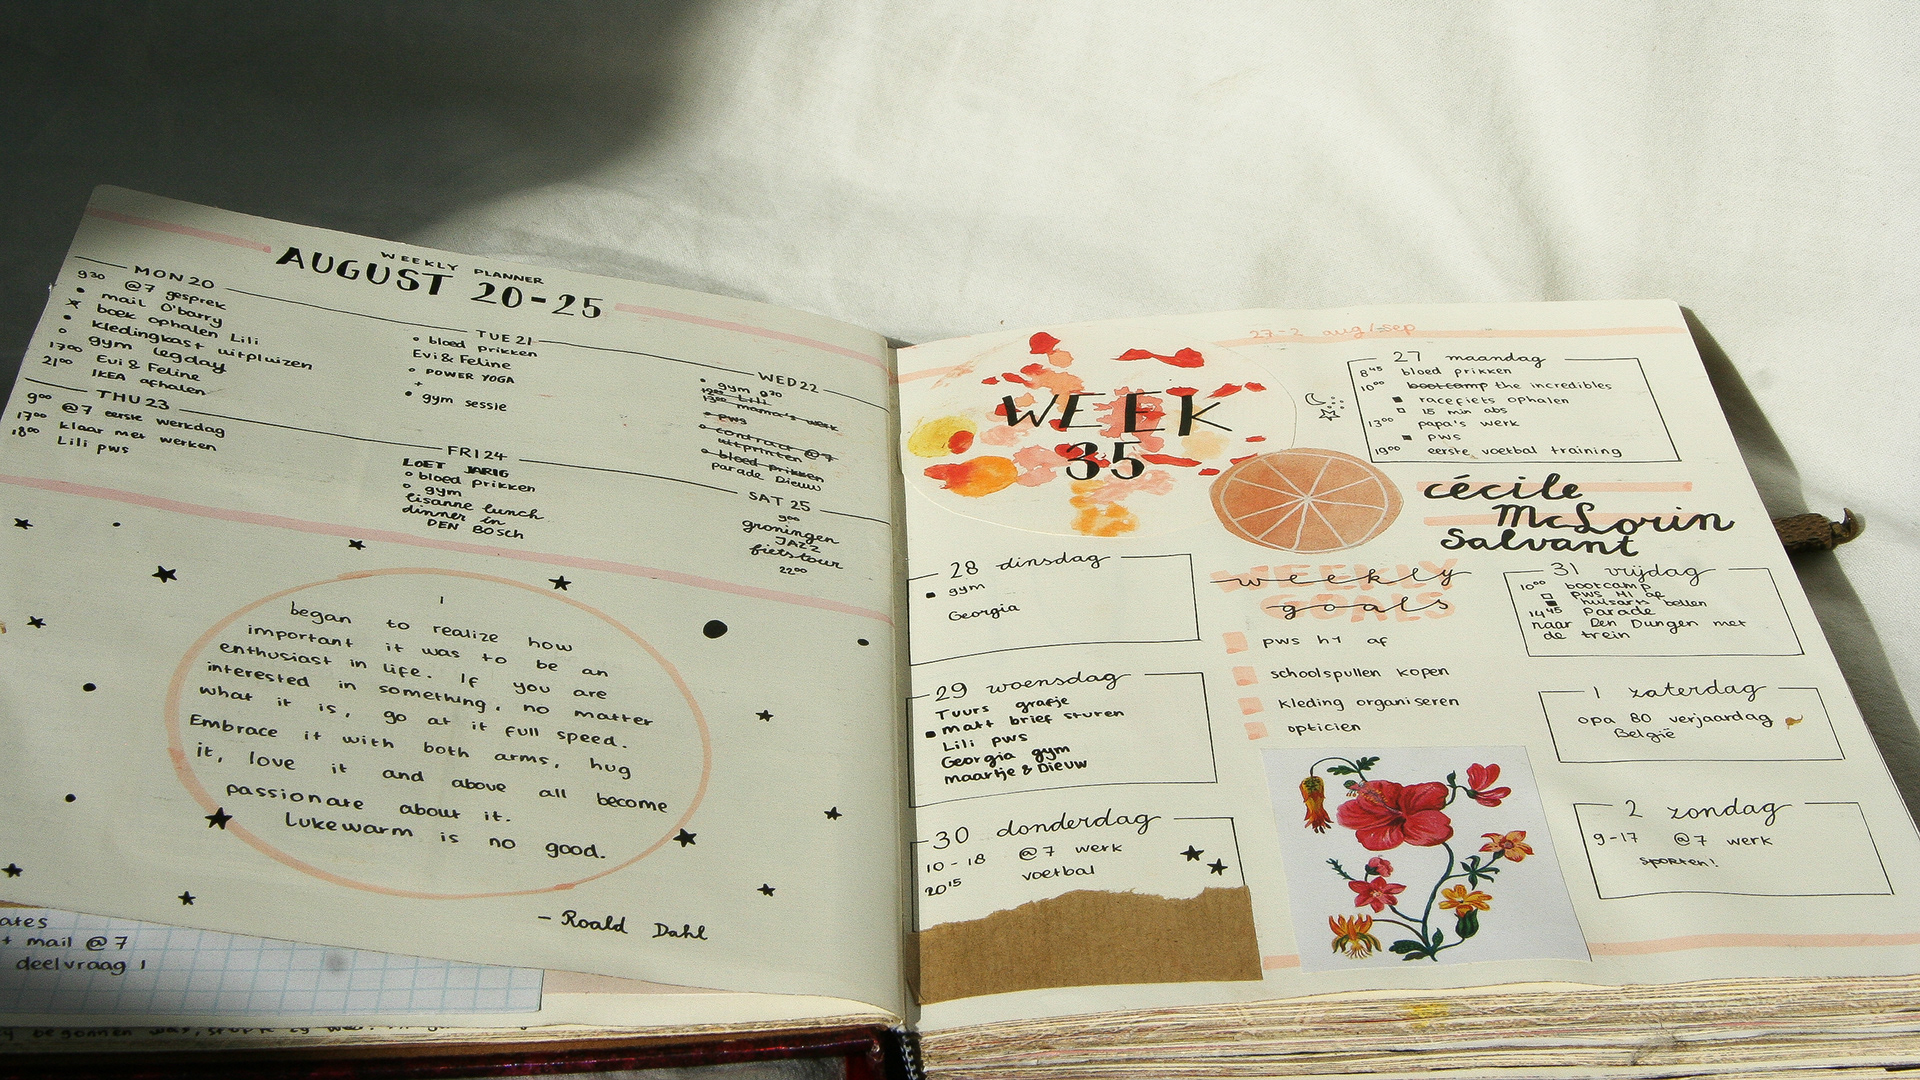 WEEKLY PLANNER
AUGUST 20-25
MON 20
9³⁰ @7 gesprek
mail O'barry
boek ophalen Lili
kledingkast uitpluizen
gym legday
17⁰⁰ Evi & Feline
21⁰⁰ IKEA afhalen
TUE 21
bloed prikken
Evi & Feline
POWER YOGA
+
gym sessie
WED 22
gym 9³⁰
12⁰⁰ Lili
13⁰⁰ mama's werk
pws
contract @7
uitprinten
bloed prikken
parade Dieuw
THU 23
9⁰⁰ @7 eerste werkdag
17⁰⁰ klaar met werken
18⁰⁰ Lili pws
FRI 24
LOET JARIG
bloed prikken
gym
Lisanne lunch
dinner in
DEN BOSCH
SAT 25
9⁰⁰
groningen
JAZZ
fietstour
22⁰⁰
I
began to realize how
important it was to be an
enthusiast in life. If you are
interested in something, no matter
what it is, go at it full speed.
Embrace it with both arms, hug
it, love it and above all become
passionate about it.
Lukewarm is no good.
- Roald Dahl
ates
+ mail @7
deelvraag 1
27-2 aug/sep
WEEK
35
27 maandag
8⁴⁵ bloed prikken
10⁰⁰ bootcamp the incredibles
racefiets ophalen
15 min abs
13⁰⁰ papa's werk
pws
19⁰⁰ eerste voetbal training
cécile
McLorin
Salvant
28 dinsdag
gym
Georgia
29 woensdag
Tuurs grafje
matt brief sturen
Lili pws
Georgia gym
maartje & Dieuw
30 donderdag
10-18 @7 werk
20¹⁵ voetbal
weekly
goals
pws h1 af
schoolspullen kopen
kleding organiseren
opticien
31 vrijdag
10⁰⁰ bootcamp
pws H1 af
huisarts bellen
14⁴⁵ Parade
naar Den Dungen met
de trein
1 zaterdag
opa 80 verjaardag
België
2 zondag
9-17 @7 werk
sporten!